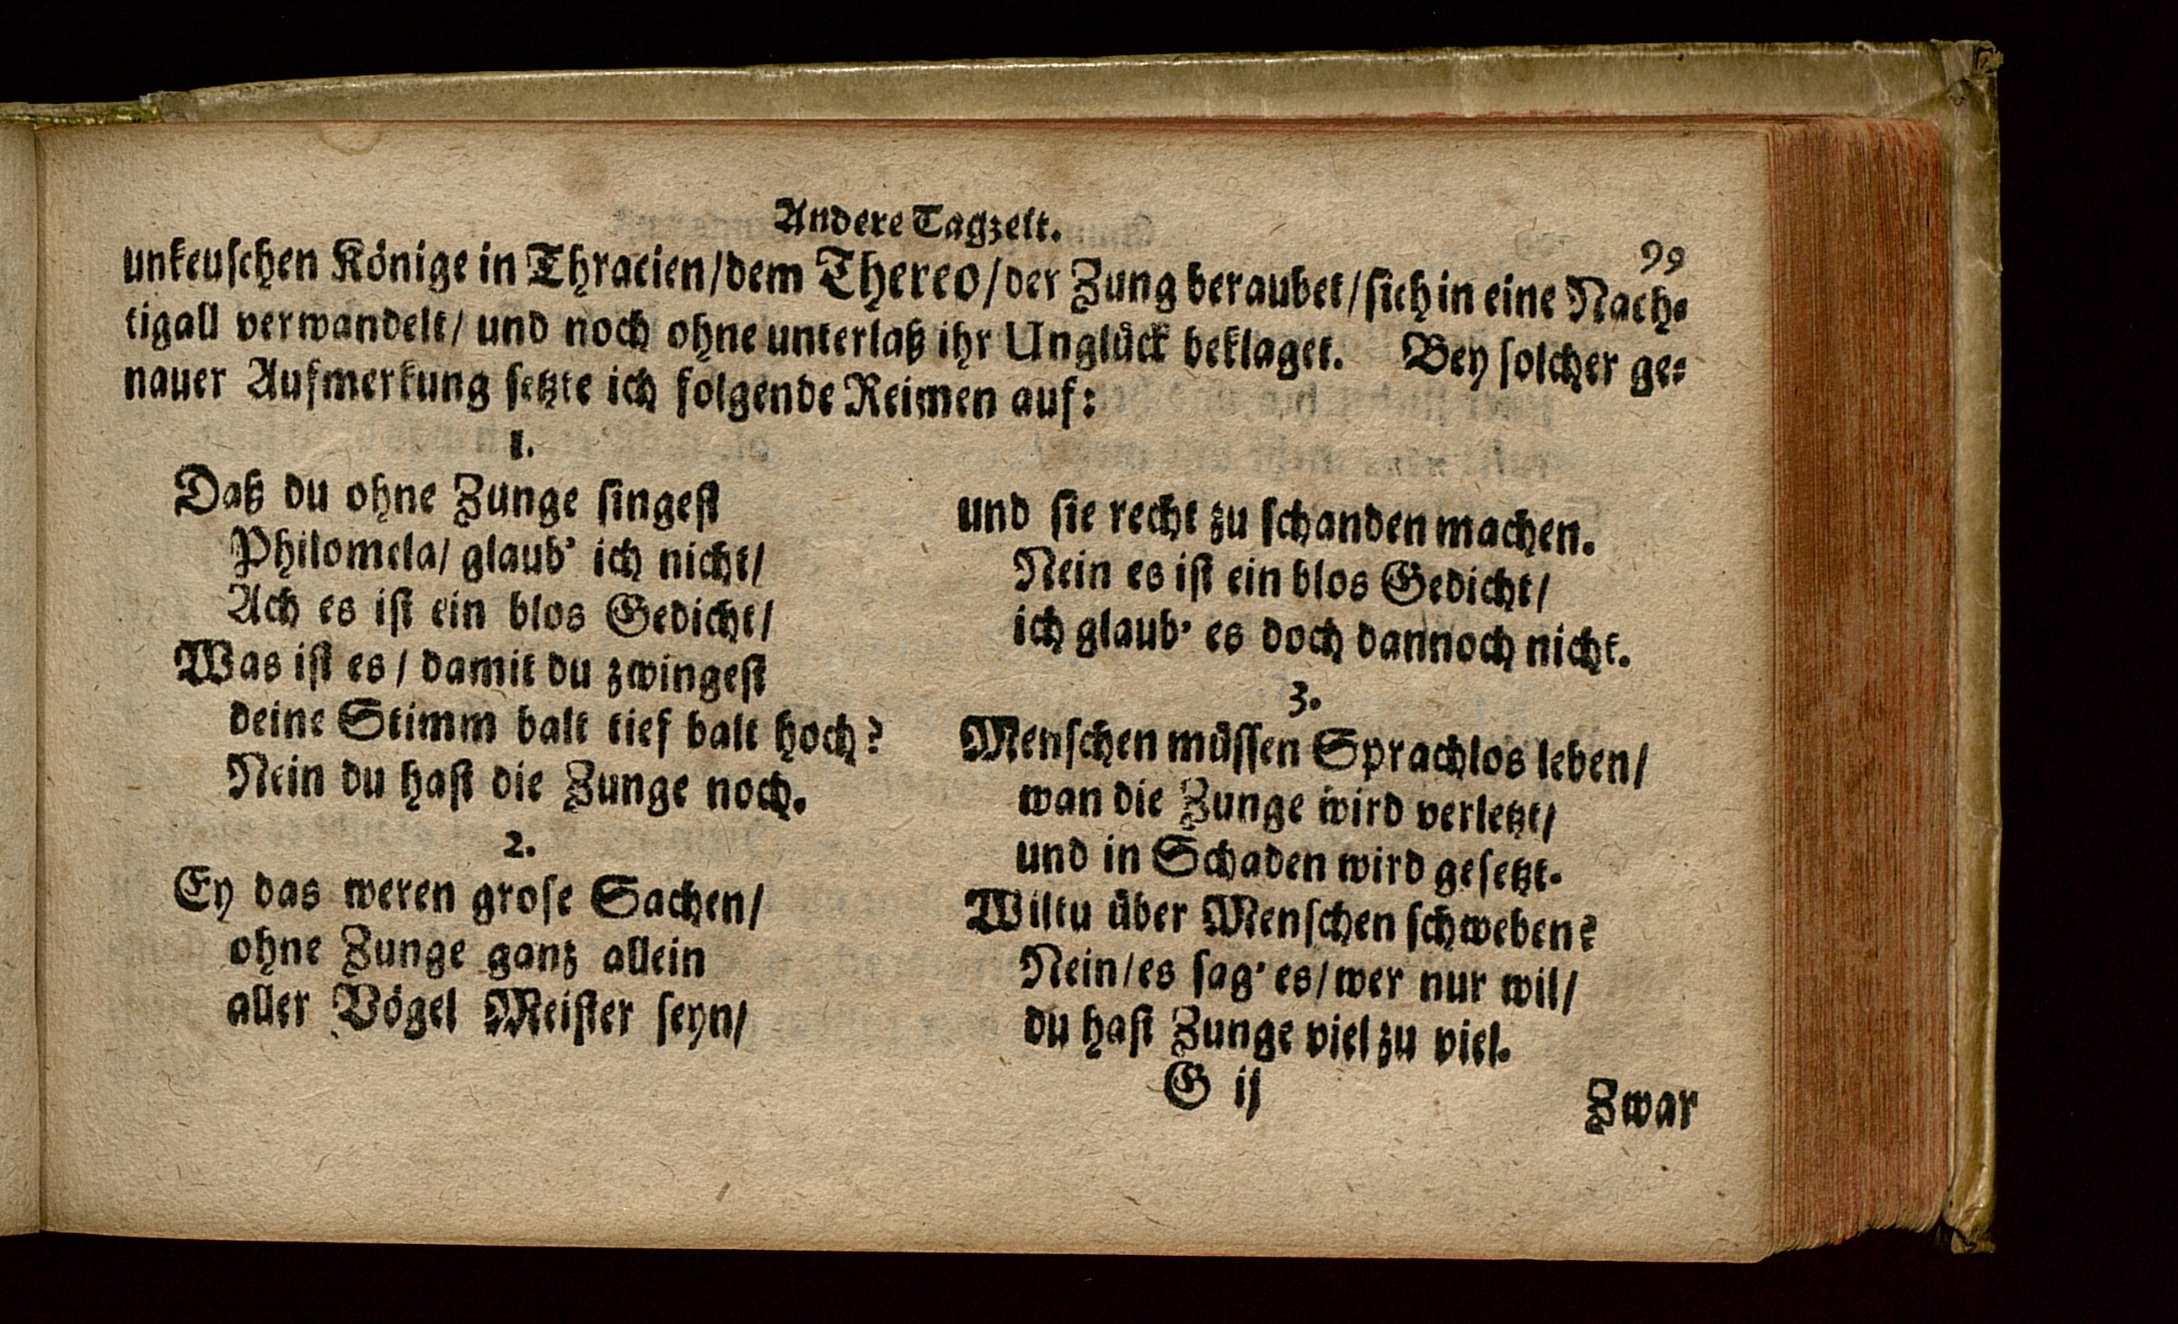 Andere Tagzeit.
99
unkeuſchen Könige in Thracien/dem Thereo/der Zung beraubet/ſich in eine Nach-
tigall verwandelt/ und noch ohne unterlaß ihr Unglück beklaget. Bey ſolcher ge-
nauer Aufmerkung ſetzte ich folgende Reimen auf:
1.
Daß du ohne Zunge ſingeſt
Philomela/ glaub' ich nicht/
Ach es iſt ein blos Gedicht/
Was iſt es/ damit du zwingeſt
deine Stimm balt tief balt hoch?
Nein du haſt die Zunge noch.
2.
Ey das weren groſe Sachen/
ohne Zunge ganz allein
aller Vögel Meiſter ſeyn/
und ſie recht zu ſchanden machen.
Nein es iſt ein blos Gedicht/
ich glaub' es doch dannoch nicht.
3.
Menſchen müſſen Sprachlos leben/
wan die Zunge wird verletzt/
und in Schaden wird geſetzt.
Wiltu über Menſchen ſchweben?
Nein/es ſag' es/wer nur wil/
du haſt Zunge viel zu viel.
G ij
Zwar